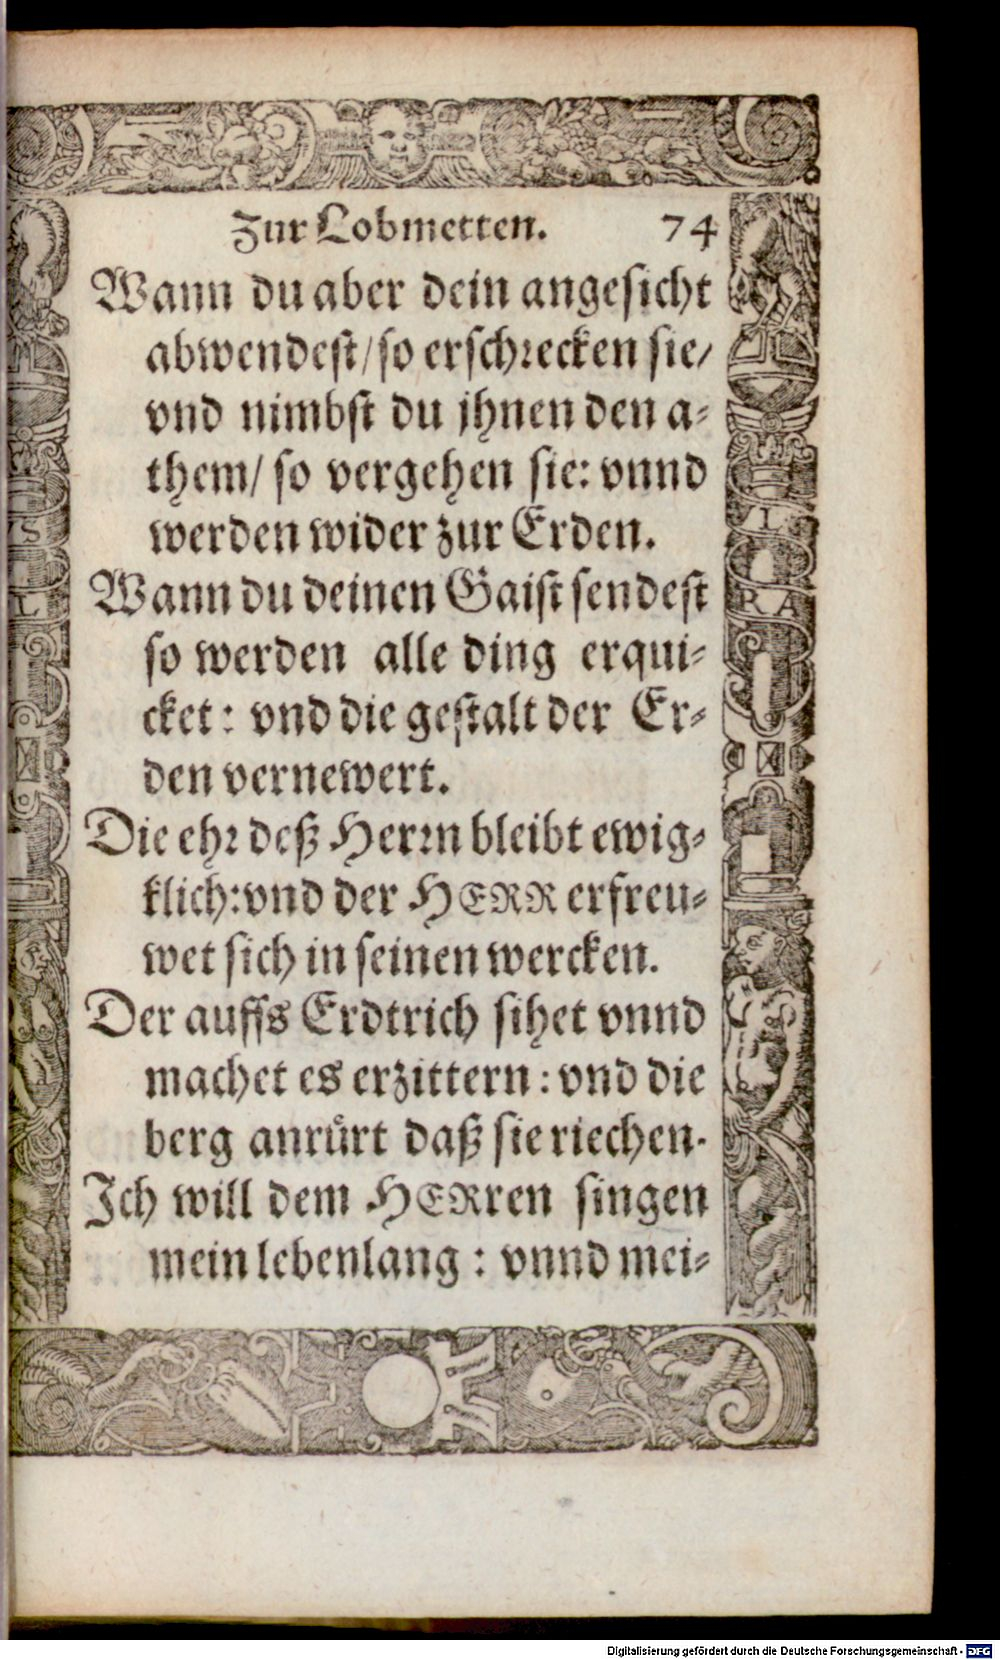 Zur Lobmetten. 74
Wann du aber dein angesicht
abwendest/ so erschrecken sie/
vnd nimbst du jhnen den a⸗
them/ so vergehen sie: vnnd
werden wider zur Erden.
Wann du deinen Gaist sendest
so werden alle ding erqui⸗
cket: vnd die gestalt der Er⸗
den vernewert.
Die ehr deß Herrn bleibt ewig⸗
klich: vnd der HERR erfreu⸗
wet sich in seinen wercken.
Der auffs Erdtrich sihet vnnd
machet es erzittern: vnd die
berg anrürt daß sie riechen.
Ich will dem HERren singen
mein lebenlang: vnnd mei⸗
S
L
I
RA
Digitalisierung gefördert durch die Deutsche Forschungsgemeinschaft - DFG